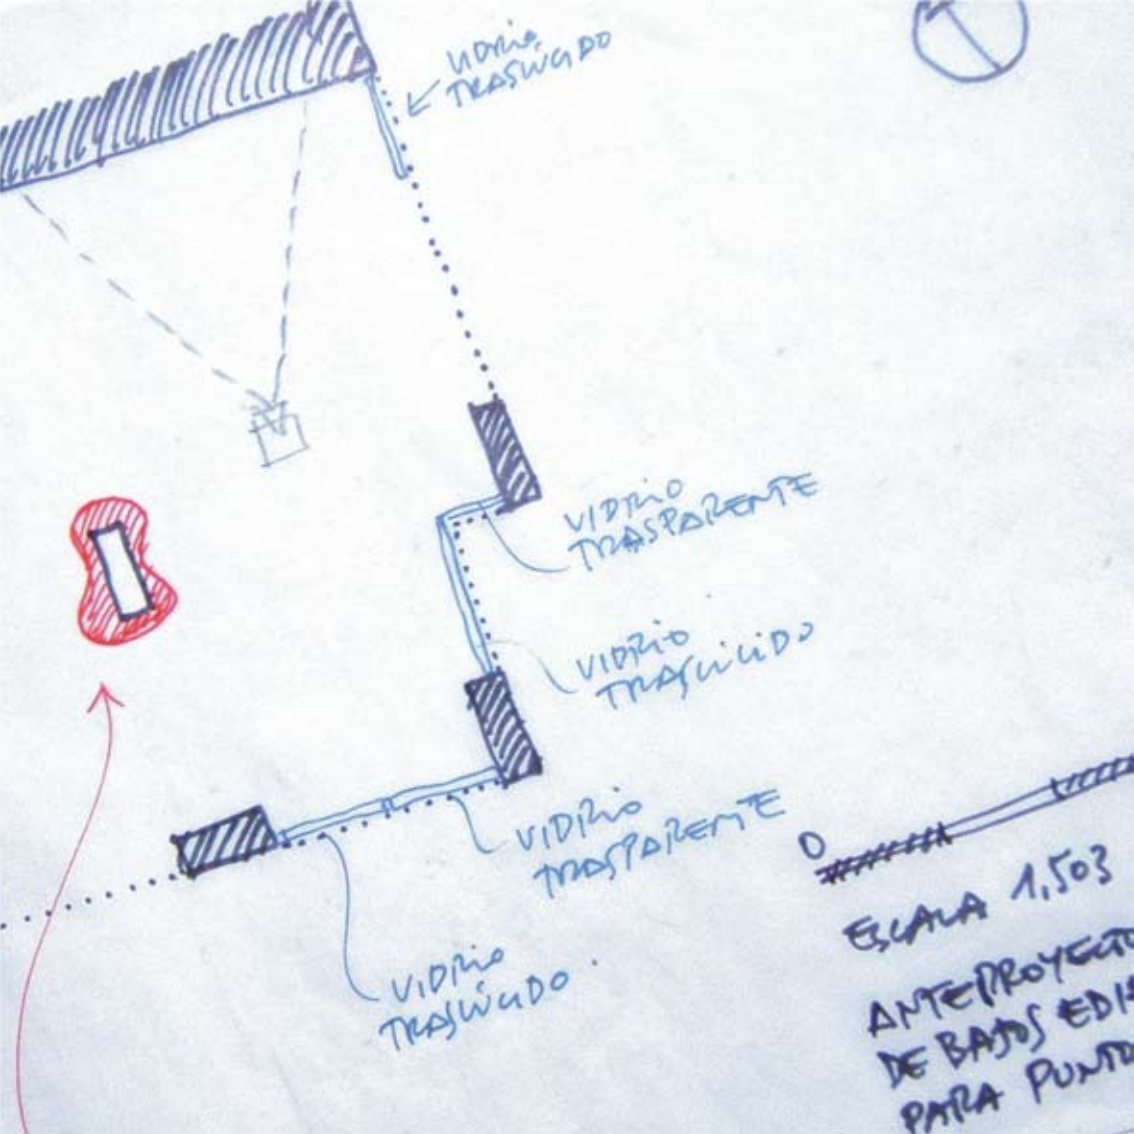 VIDRIO
TRASLÚCIDO
VIDRIO
TRASPARENTE
VIDRIO
TRASLÚCIDO
VIDRIO
TRASPARENTE
VIDRIO
TRASLÚCIDO
0
ESCALA 1,503
ANTEPROYECTO
DE BAJOS EDI
PARA PUNTO